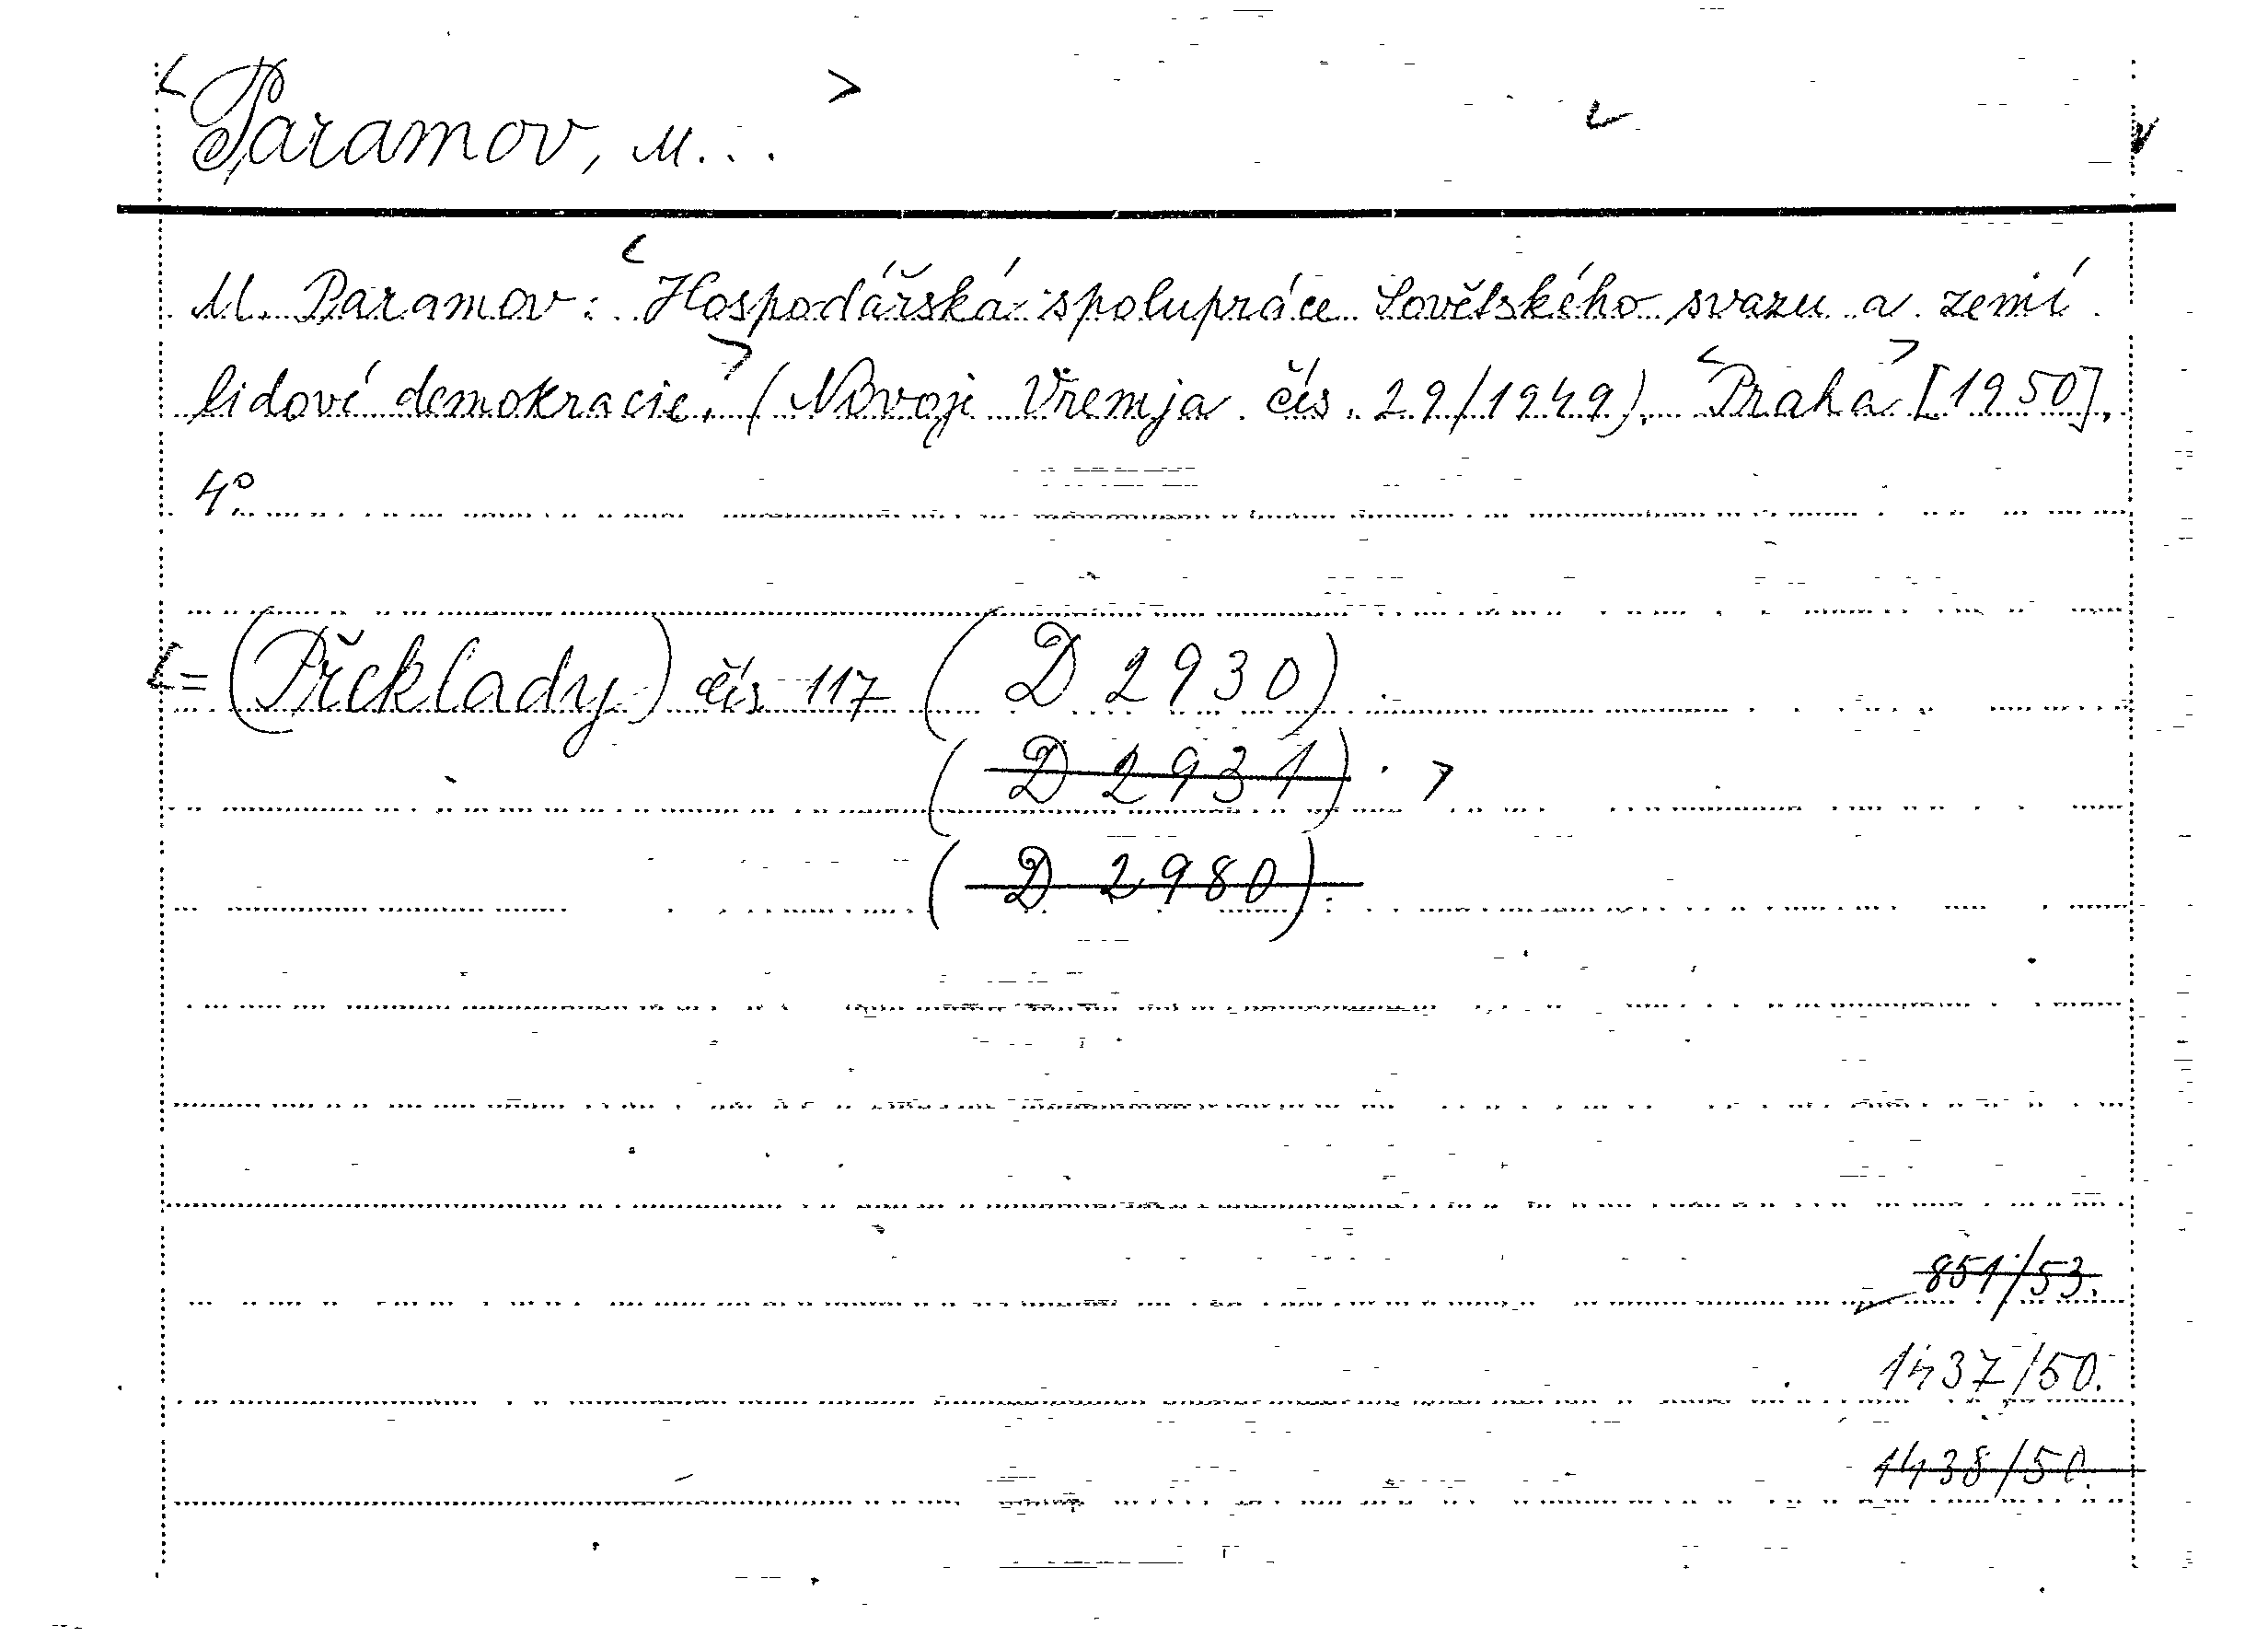 Paramov, M...
M. Paramov: Hospodářská spolupráce Sovětského svazu a zemí
lidové demokracie. (Novoje Vremja čís. 29/1949). Praha [1950].
4°
=(Překlady) čís 117 (D 2930)
(D 2931).
(D 2980).
851/53.
1437/50.
1438/50.